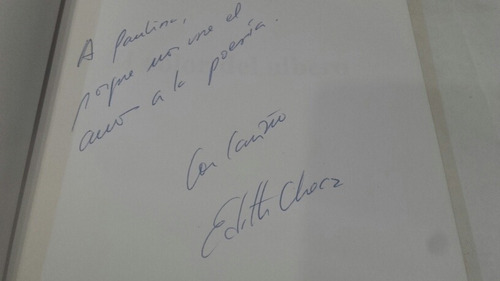 A Paulina,
porque nos une el
amor a la poesía.
Con cariño
Edith Checa